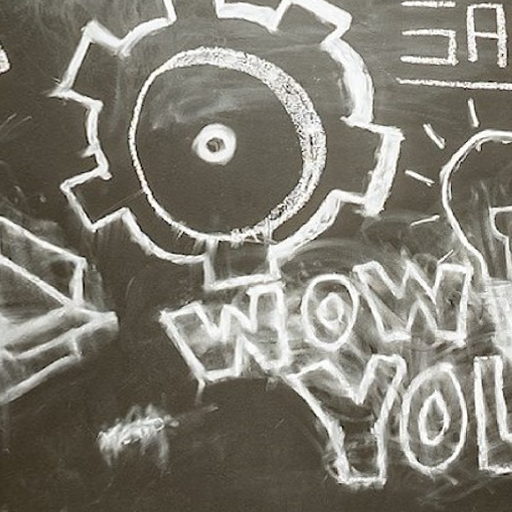 SA
WOW
YOU